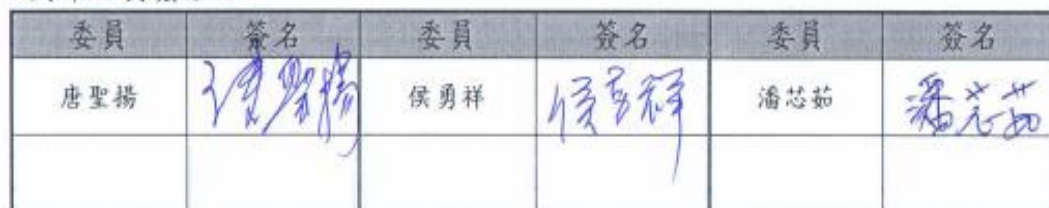 委員 簽名 委員 簽名 委員 簽名
唐聖揚 唐聖揚 侯勇祥 侯勇祥 潘芯茹 潘芯茹